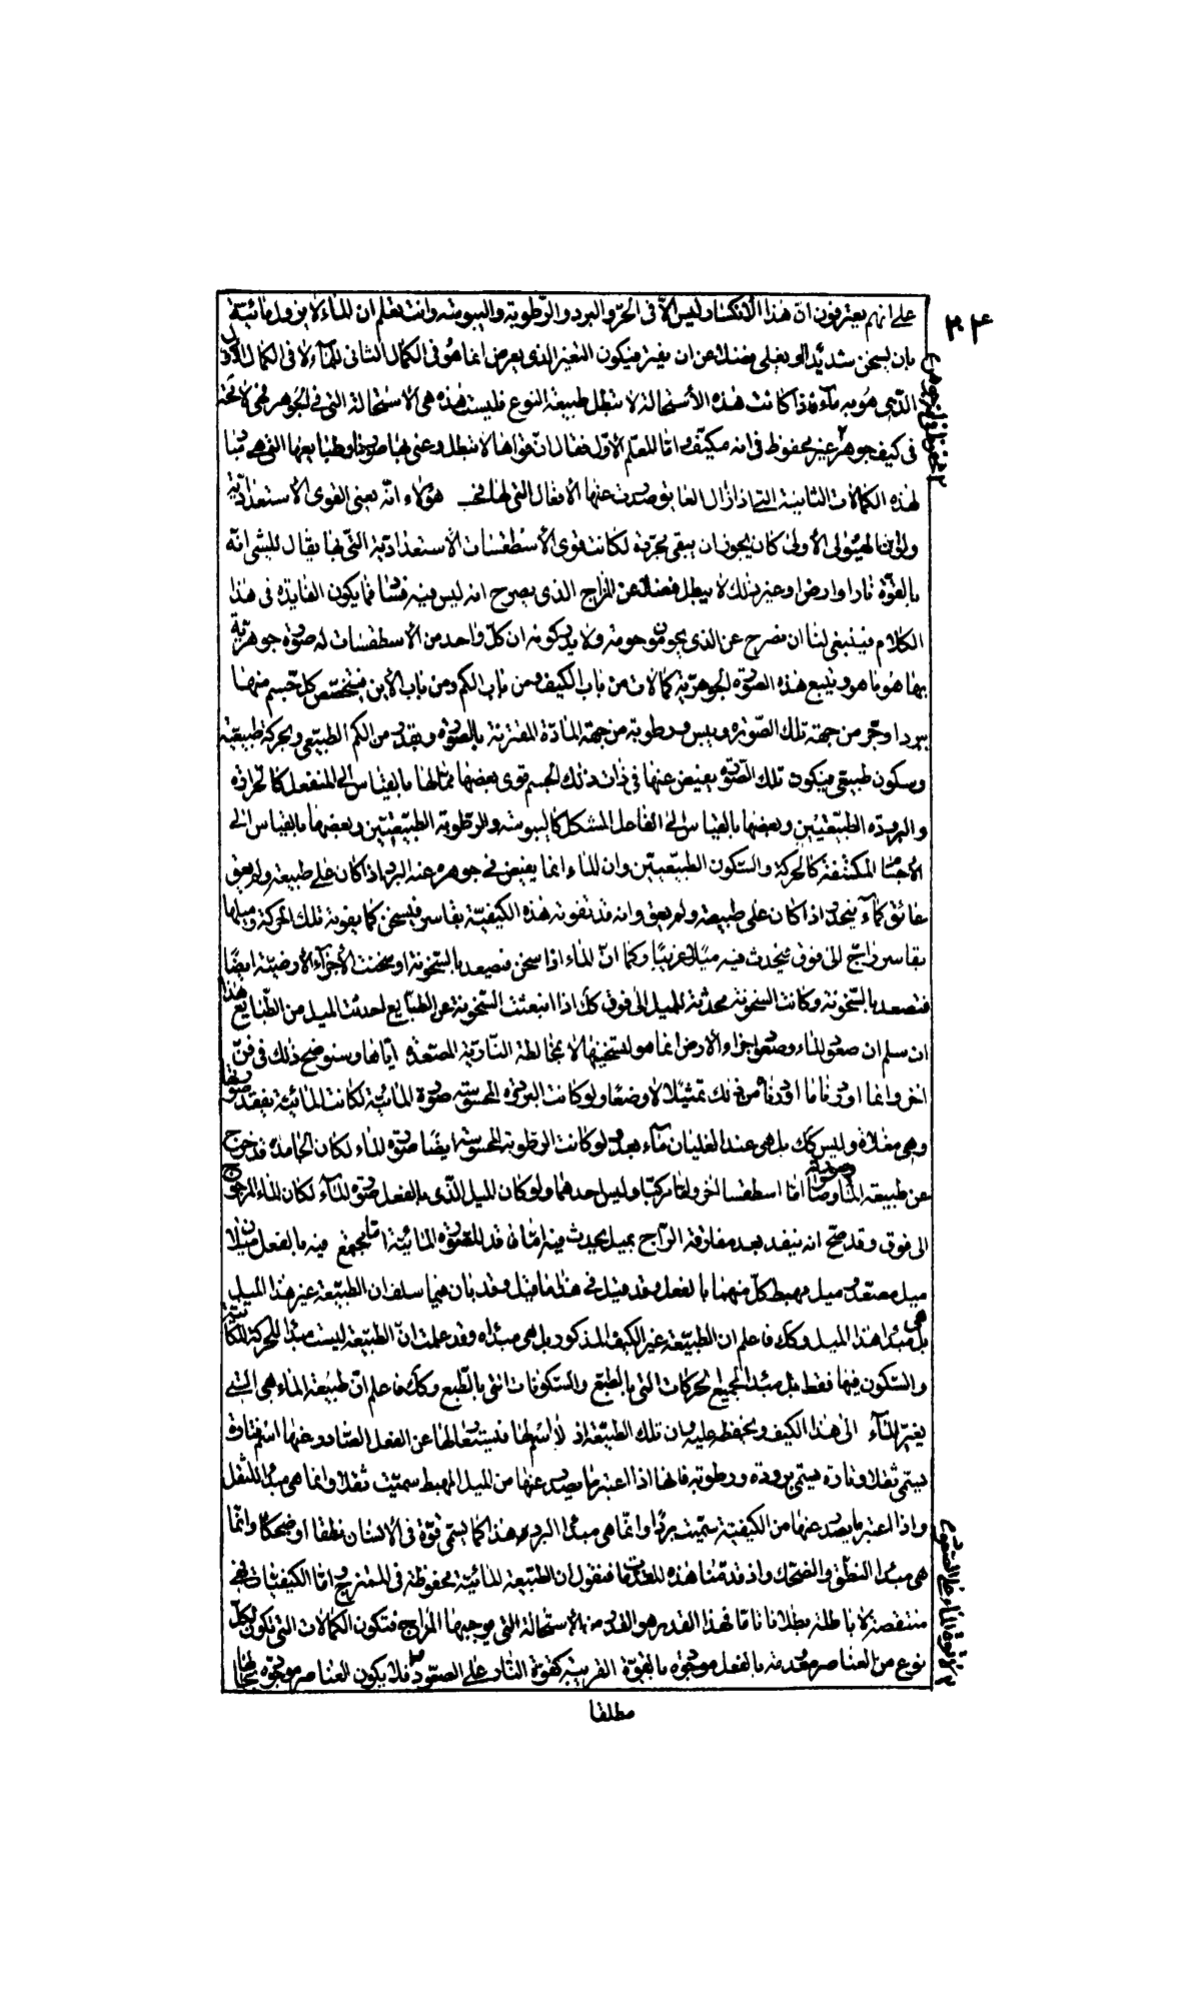 ٣٤
على انهم يعترفون ان هذا الانكسار ليس الا في الحر والبرد والرطوبة واليبوسة وانت تعلم ان الماء لا يزول مائيته
بان يسخن شديدا او يغلى فضلا عن ان يفتر فيكون التغير الذي يعرض انما هو في الكمال الثاني للماء لا في الكمال الاول
الذي هو به ماء فاذا كانت هذه الاستحالة لا تبطل طبيعة النوع فليست هذه هي الاستحالة التي في الجوهر فهي لا محة
في كيف جوهر غير محفوظ في انه مكيف واما المعلم الاول فقال ان قواها لا تبطل وعنى بها صورها وطبايعها التي هي مبا
لهذه الكمالات الثانية التي اذا زال العايق صدرت عنها الافعال التي لها فحسب هؤلاء انه يعني القوى الاستعدادية
ولو ان الهيولى الاولى كان يجوز ان يبقى مجردة لكانت قوى الاسطقسات الاستعدادية التي بها يقال للشئ انه
بالقوة نارا وارضا وغير ذلك لا يبطل فضلا عن المزاج الذي يصرح انه ليس فيه فسادا فما يكون الفايدة في هذا
الكلام فينبغي لنا ان نصرح عن الذي يحومون حومه ولا يدركونه ان كل واحد من الاسطقسات له صورة جوهرية
بها هو ما هو ويتبع هذه الصورة الجوهرية كمالات من باب الكيف ومن باب الكم ومن باب الاين فيتخصص كل جسم منها
ببرد او حر من جهة تلك الصورة ويبس ورطوبة من جهة المادة المقترنة بالصورة وبقدر من الكم الطبيعي وبحركة طبيعية
وسكون طبيعي فيكون تلك الصورة يفيض عنها في ذات ذلك الجسم قوى بعضها مما لها بالقياس الى المنفعل كالحرارة
والبرودة الطبيعيتين وبعضها بالقياس الى الفاعل المشكل كاليبوسة والرطوبة الطبيعيتين وبعضها بالقياس الى
الاجسام المكتنفة كالحركة والسكون الطبيعيتين وان الماء انما يفيض في جوهره عنه البرد اذا كان على طبيعته ولم يعق
عائق كماء ينحدر اذا كان على طبيعته ولم يعق وانه قد تفوته هذه الكيفية بقاسر فيسخن كما يفوته تلك الحركة وميلها
بقاسر زاج الى فوق فيحدث فيه ميلا غريبا وكما ان الماء اذا سخن فيصعد بالسخونة او سخنت الاجزاء الارضية ايضا
فتصعد بالسخونة وكانت السخونة محدثة للميل الى فوق كك اذا انبعثت السخونة عن الطبايع احدثت الميل من الطبايع هذا
ان سلم ان صعود الماء وصعود اجزاء الارض انما هو لتسخينها لا بمخالطة النارية المصعدة اياها وسنوضح ذلك في فن
اخر وانما اوردنا ما اوردناه من ذلك تمثيلا لا وضعا ولو كانت البرودة المحسوسة صورة المائية لكانت المائية يفقد صورتها
وهي مغلاة وليس كك بل هي عند الغليان ماء بعد ولو كانت الرطوبة المحسوسة ايضا صورة للماء لكان الجامد قد خرج
عن طبيعة الماء وصار اما اسطقسا اخر واما مركبا وليس احدهما ولو كان الميل الذي بالفعل صورة الماء لكان الماء المزجوج
الى فوق وقد صح انه ينفد بعد مفارقة الزاج بميل يحدث فيه اما فاقدا للصورة المائية اما مجتمع فيه بالفعل ميلان
ميل مصعد وميل مهبط كل منهما بالفعل وقد قيل في هذا ما قيل وقد بان فيما سلف ان الطبيعة غير هذا الميل
بل هي مبدأ هذا الميل وكك فاعلم ان الطبيعة غير الكيف المذكور بل هي مبداه وقد علمت ان الطبيعة ليست مبدأ للحركة المكانية
والسكون فيها فقط بل مبدأ لجميع الحركات التي بالطبع والسكونات التي بالطبع وكك فاعلم ان طبيعة الماء هي التي
يغير الماء الى هذا الكيف ويحفظه عليه وان تلك الطبيعة اذ لا اسم لها فيستعار لها عن الفعل الصادر عنها اسم فتارة
يسمى ثقلا وتارة يسمى برودة ورطوبة فانها اذا اعتبر ما يصدر عنها من الميل المهبط سميت ثقلا وانما هي مبدأ للثقل
واذا اعتبر ما يصدر عنها من الكيفية سميت بردا وانما هي مبدأ البرد وهذا كما يسمى قوة في الانسان نطقا او ضحكا وانما
هي مبدأ النطق والضحك واذ قدمنا هذه المقدمات فنقول ان الطبيعة المائية محفوظة في الممتزج واما الكيفيات فهي
منتقصة لا باطلة بطلانا تاما فهذا القدر هو القدر من الاستحالة التي يوجبها المزاج فتكون الكمالات التي تكون لكل
نوع من العناصر معدومة بالفعل موجودة بالقوة القريبة كقوة النار على الصعود فلا يكون العناصر موجودة بحالها
مطلقا